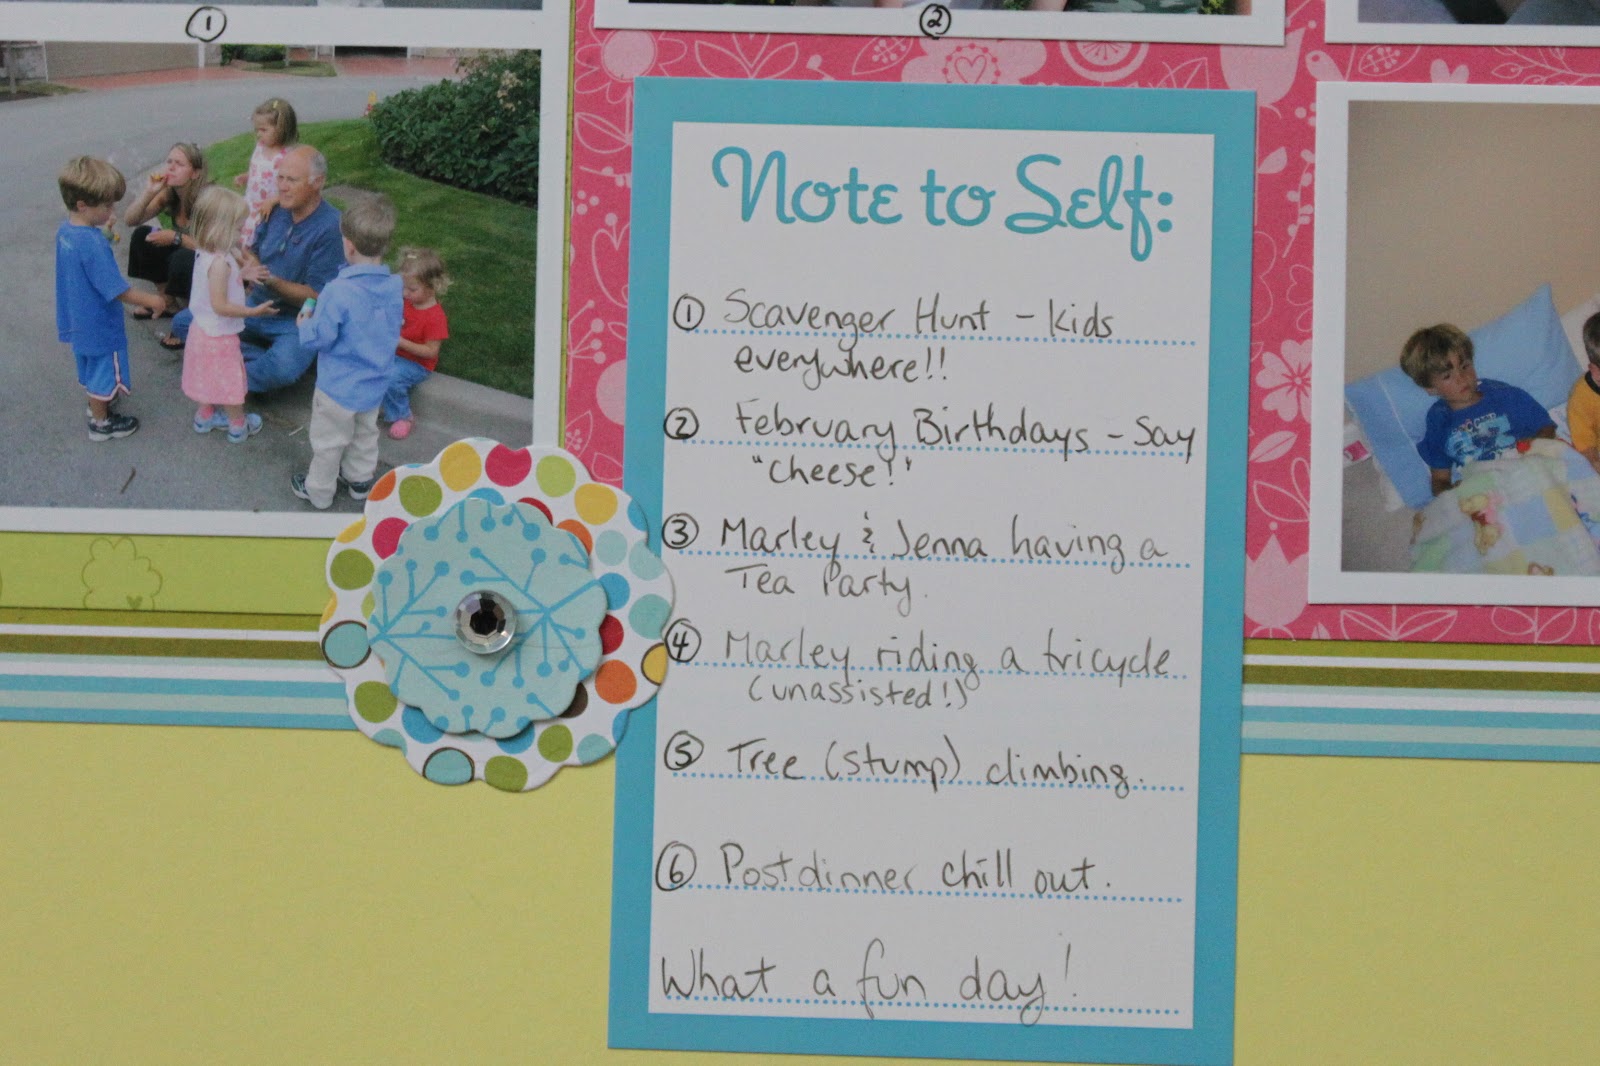 ①
②
Note to Self:
① Scavenger Hunt - Kids
everywhere!!
② February Birthdays - Say
"Cheese!"
③ Marley & Jenna having a
Tea Party.
④ Marley riding a tricycle
(unassisted!)
⑤ Tree (stump) climbing.
⑥ Postdinner chill out.
What a fun day!